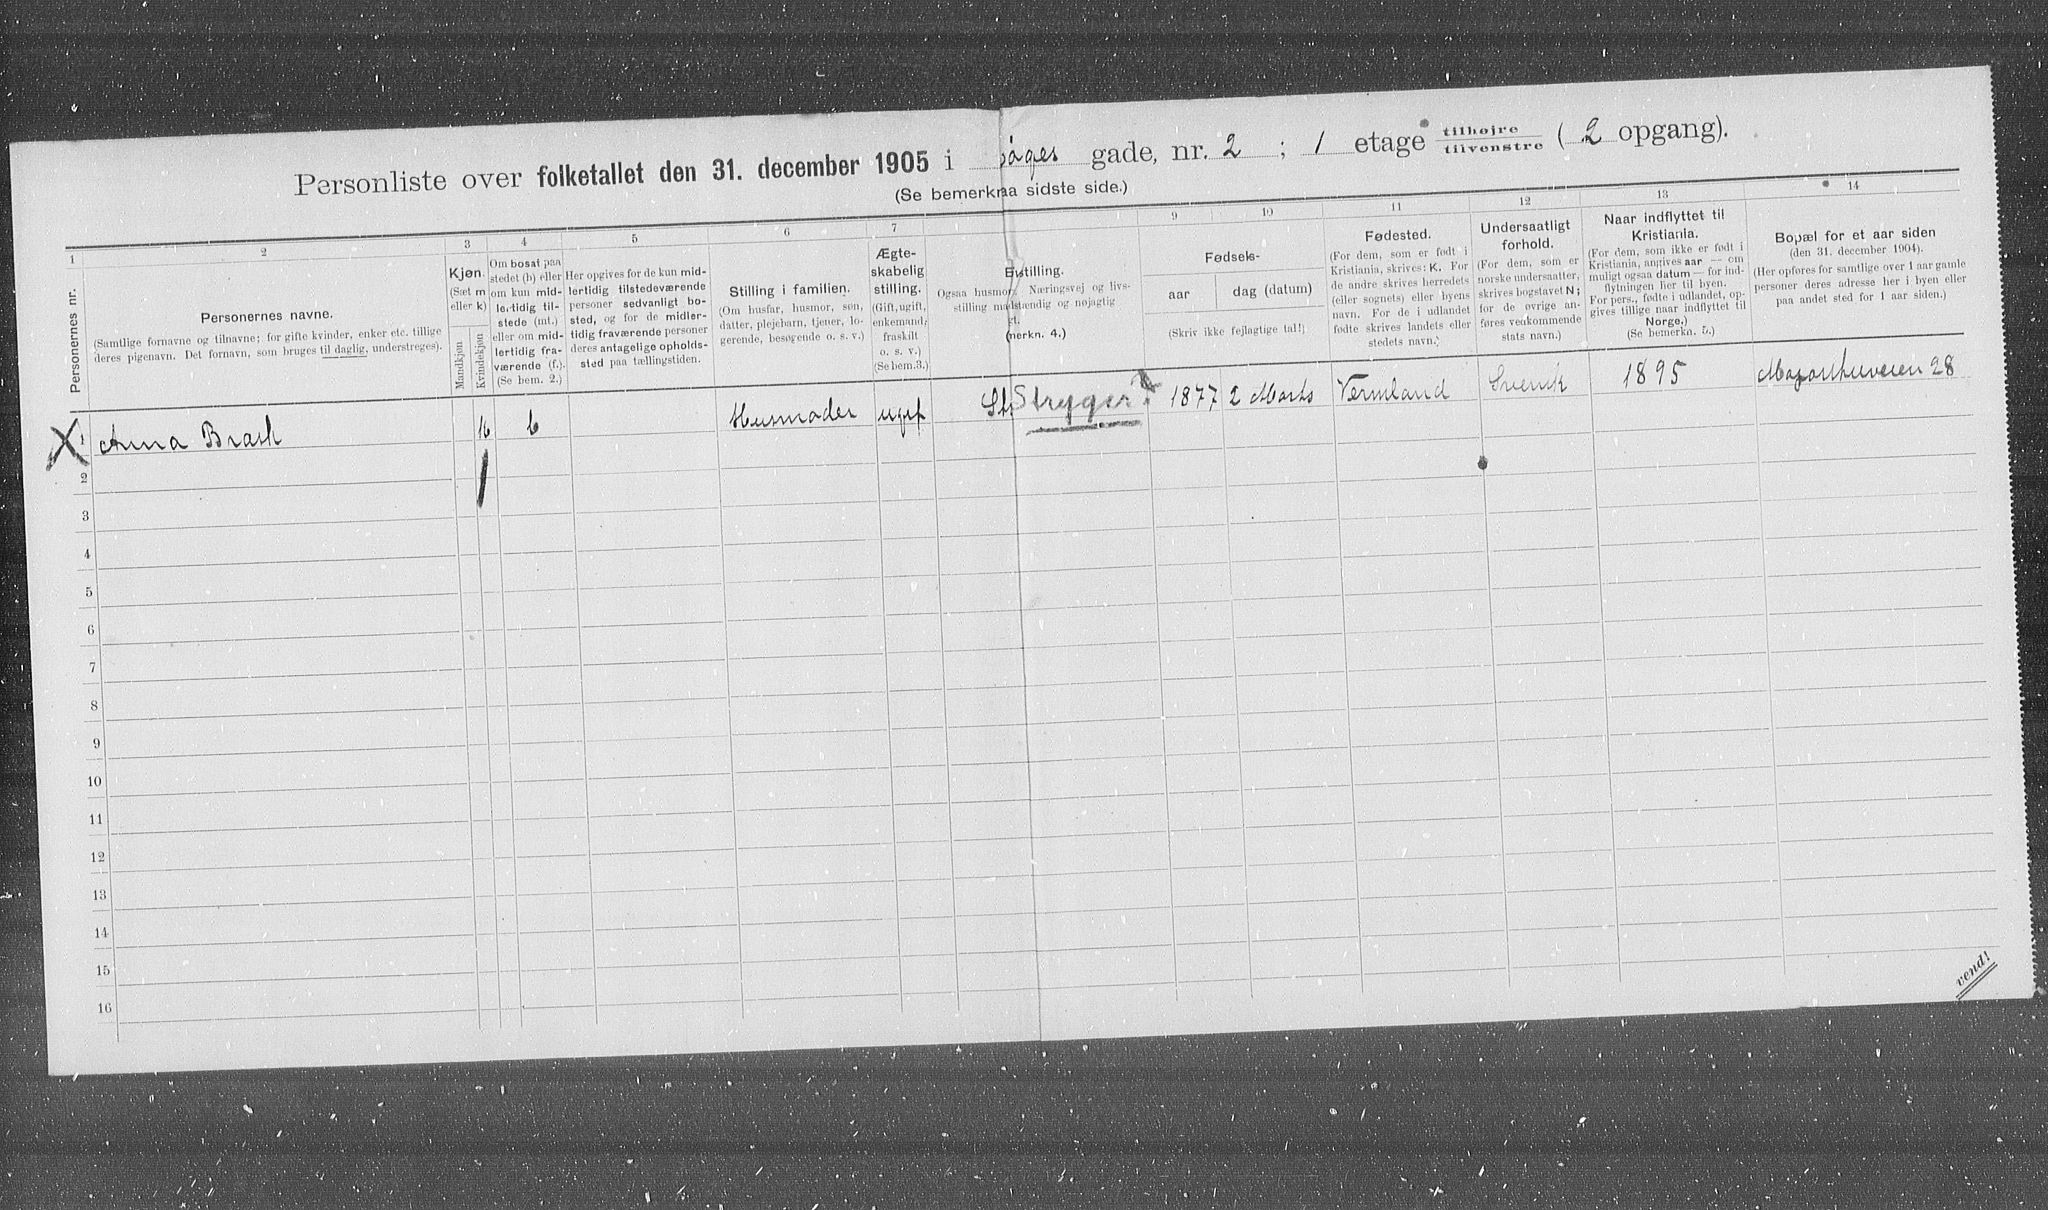 Personliste over folketallet den 31. december 1905 i åges gade, nr. 2 ; 1 etage tilhøjre tilvenstre ( 2 opgang).
(Se bemerkna sidste side.)
1 2 3 4 5 6 7 9 10 11 12 13 14
Personernes nr.
Personernes navne.
(Samtlige fornavne og tilnavne; for gifte kvinder, enker etc. tillige
deres pigenavn. Det fornavn, som bruges til daglig, understreges).
Kjøn.
(Sæt m
eller k)
Mandkjøn
Kvindekjøn
Om bosat paa
stedet (b) eller
om kun mid-
lertidig til-
stede (mt.)
eller om mid-
lertidig fra-
værende (f.).
(Se bem. 2.)
Her opgives for de kun mid-
lertidig tilstedeværende
personer sedvanligt bo-
sted, og for de midler-
tidig fraværende personer
deres antagelige opholds-
sted paa tællingstiden.
Stilling i familien.
(Om husfar, husmor, søn,
datter, plejebarn, tjener, lo-
gerende, besøgende o. s. v.)
Ægte-
skabelig
stilling.
(Gift, ugift,
enkemand,
fraskilt
o. s. v.)
(Se bem.3.)
stilling.
Ogsaa husmor. Næringsvej og livs-
stilling nødstændig og nøjagtig
gt.
merkn. 4.)
Fødsels-
aar
dag (datum)
(Skriv ikke fejlagtige tal!)
Fødested.
(For dem, som er født i
Kristiania, skrives: K. For
de andre skrives herredets
(eller sognets) eller byens
navn. For de i udlandet
fødte skrives landets eller
stedets navn.)
Undersaatligt
forhold.
(For dem, som er
norske undersaatter,
skrives bogstavet N;
for de øvrige an-
føres vedkommende
stats navn.)
Naar indflyttet til
Kristiania.
(For dem, som ikke er født i
Kristiania, angives aar — om
muligt ogsaa datum — for ind-
flytningen her til byen.
For pers., fødte i udlandet, op-
gives tillige naar indflyttet til
Norge.)
(Se bemerkn. 5.)
Bopæl for et aar siden
(den 31. december 1904).
(Her opføres for samtlige over 1 aar gamle
personer deres adresse her i byen eller
paa andet sted for 1 aar siden.)
1 Anna Brask k b Husmoder ugift Stryger 1877 2 Marts Vermland Svensk 1895 Majorstuveien 28
2
3
4
5
6
7
8
9
10
11
12
13
14
15
16
vend!